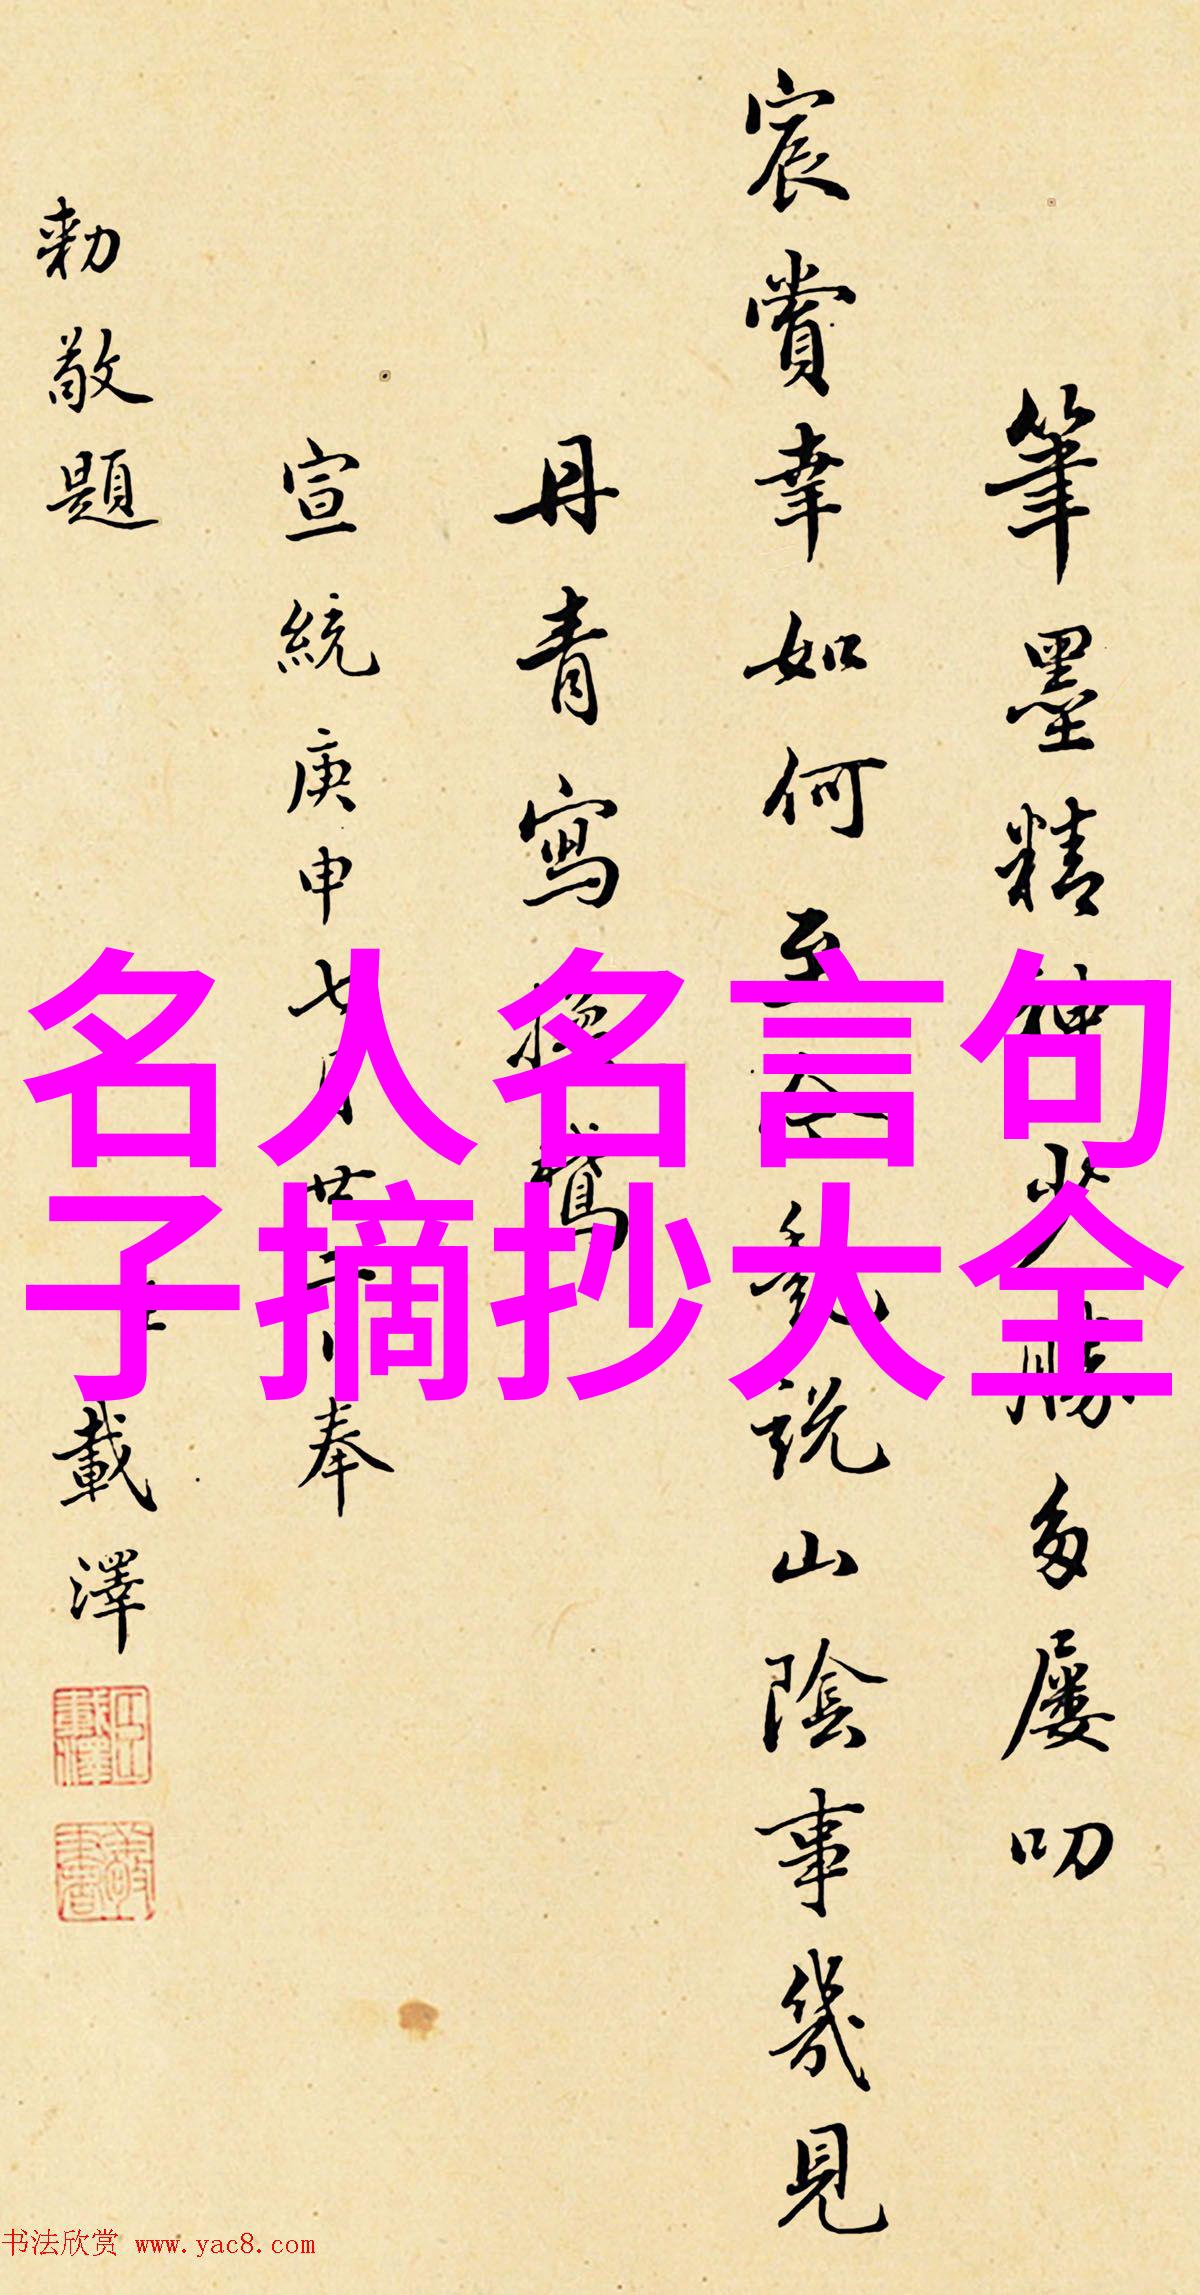 筆墨精神妙勝多屢叨
宸賞幸如何至今艷說山陰事幾見
丹青寫換鵝
宣統庚申七月廿二日奉
勅敬題 臣載澤
名人名言句
子摘抄大全
书法欣赏 www.yac8.com